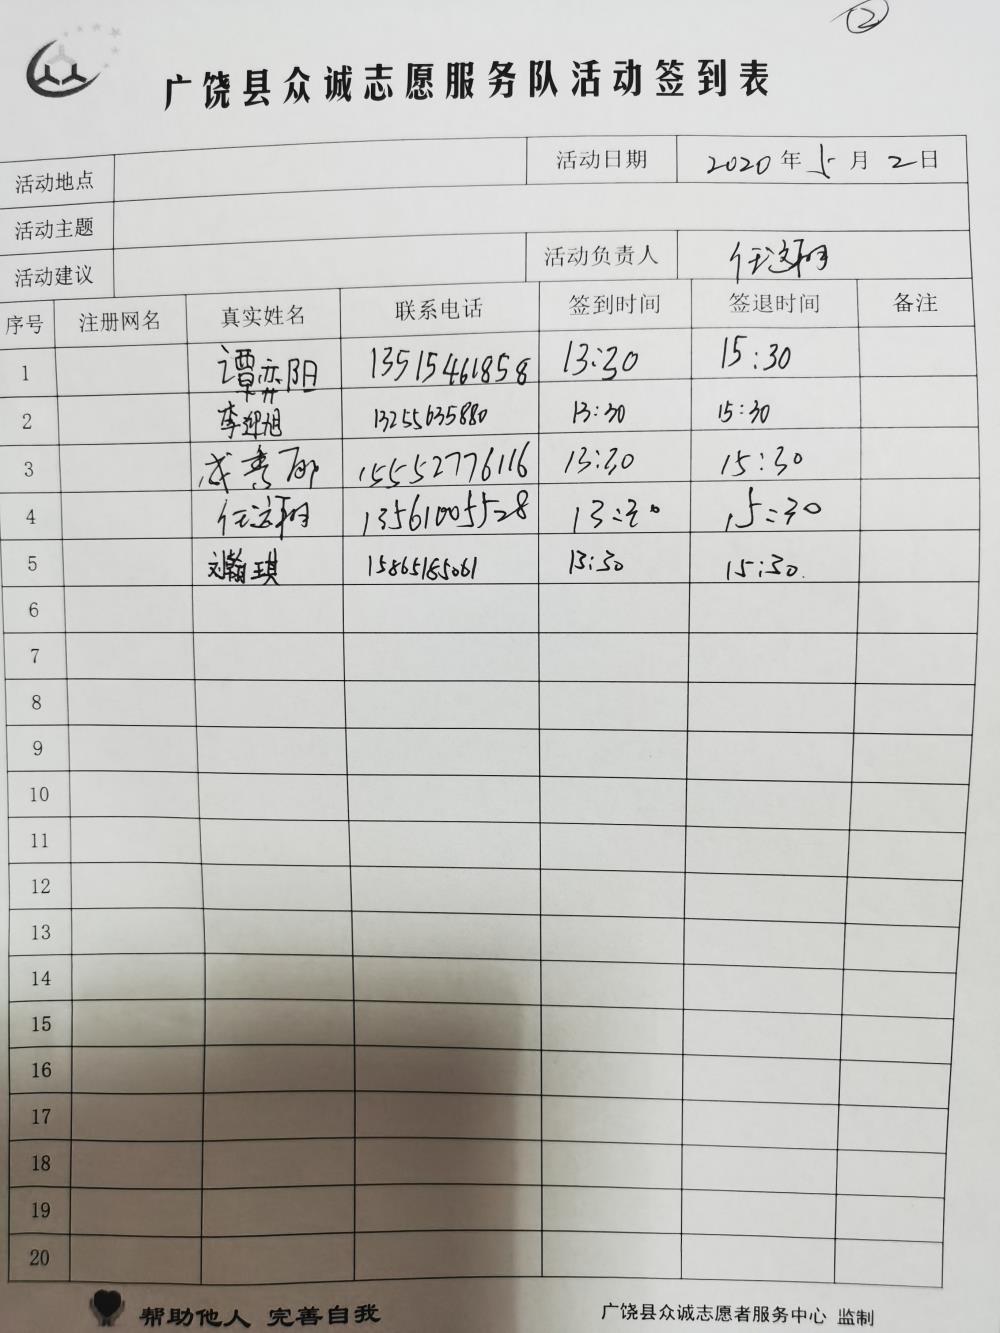 ②
广饶县众诚志愿服务队活动签到表
活动地点 活动日期 2020年5月2日
活动主题
活动建议 活动负责人
序号 注册网名 真实姓名 联系电话 签到时间 签退时间 备注
1 谭弈阳 13515461858 13:30 15:30
2 李迎旭 13255635880 13:30 15:30
3 15552776116 13:30 15:30
4 13561005528 13:30 15:30
5 刘翰琪 15865185061 13:30 15:30
6
7
8
9
10
11
12
13
14
15
16
17
18
19
20
帮助他人 完善自我 广饶县众诚志愿者服务中心 监制